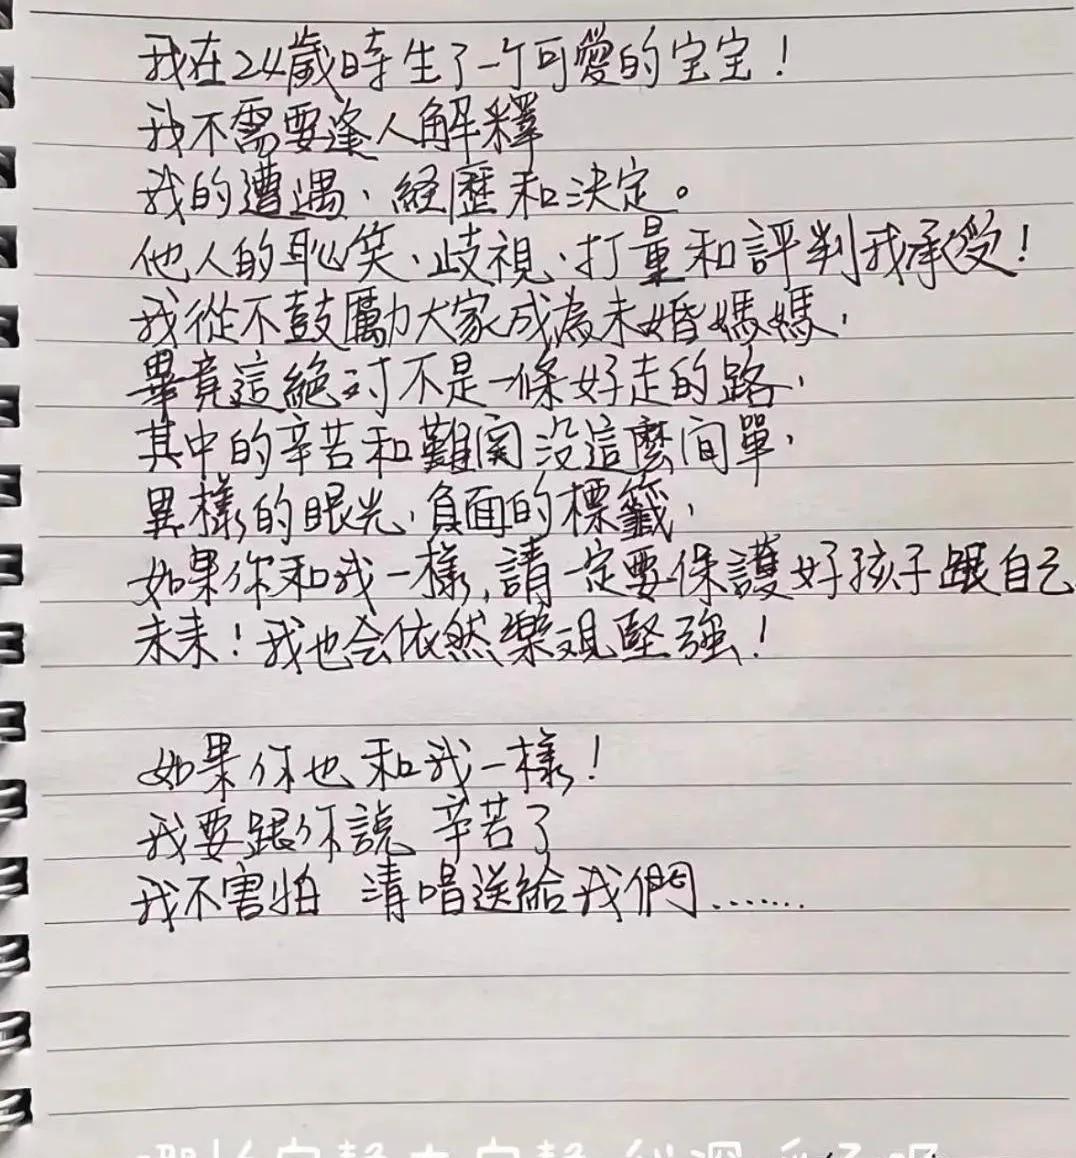 我在24歲時生了一个可愛的宝宝！
我不需要逢人解釋
我的遭遇、經歷和決定。
他人的恥笑、歧視、打量和評判我承受！
我從不鼓勵大家成為未婚媽媽，
畢竟這絕对不是一條好走的路，
其中的辛苦和難関没這麼间單，
異樣的眼光、負面的標籤，
如果你和我一樣，請一定要保護好孩子跟自己
未来！我也会依然樂观堅強！
如果你也和我一樣！
我要跟你說 辛苦了
我不害怕 清唱送給我們.......